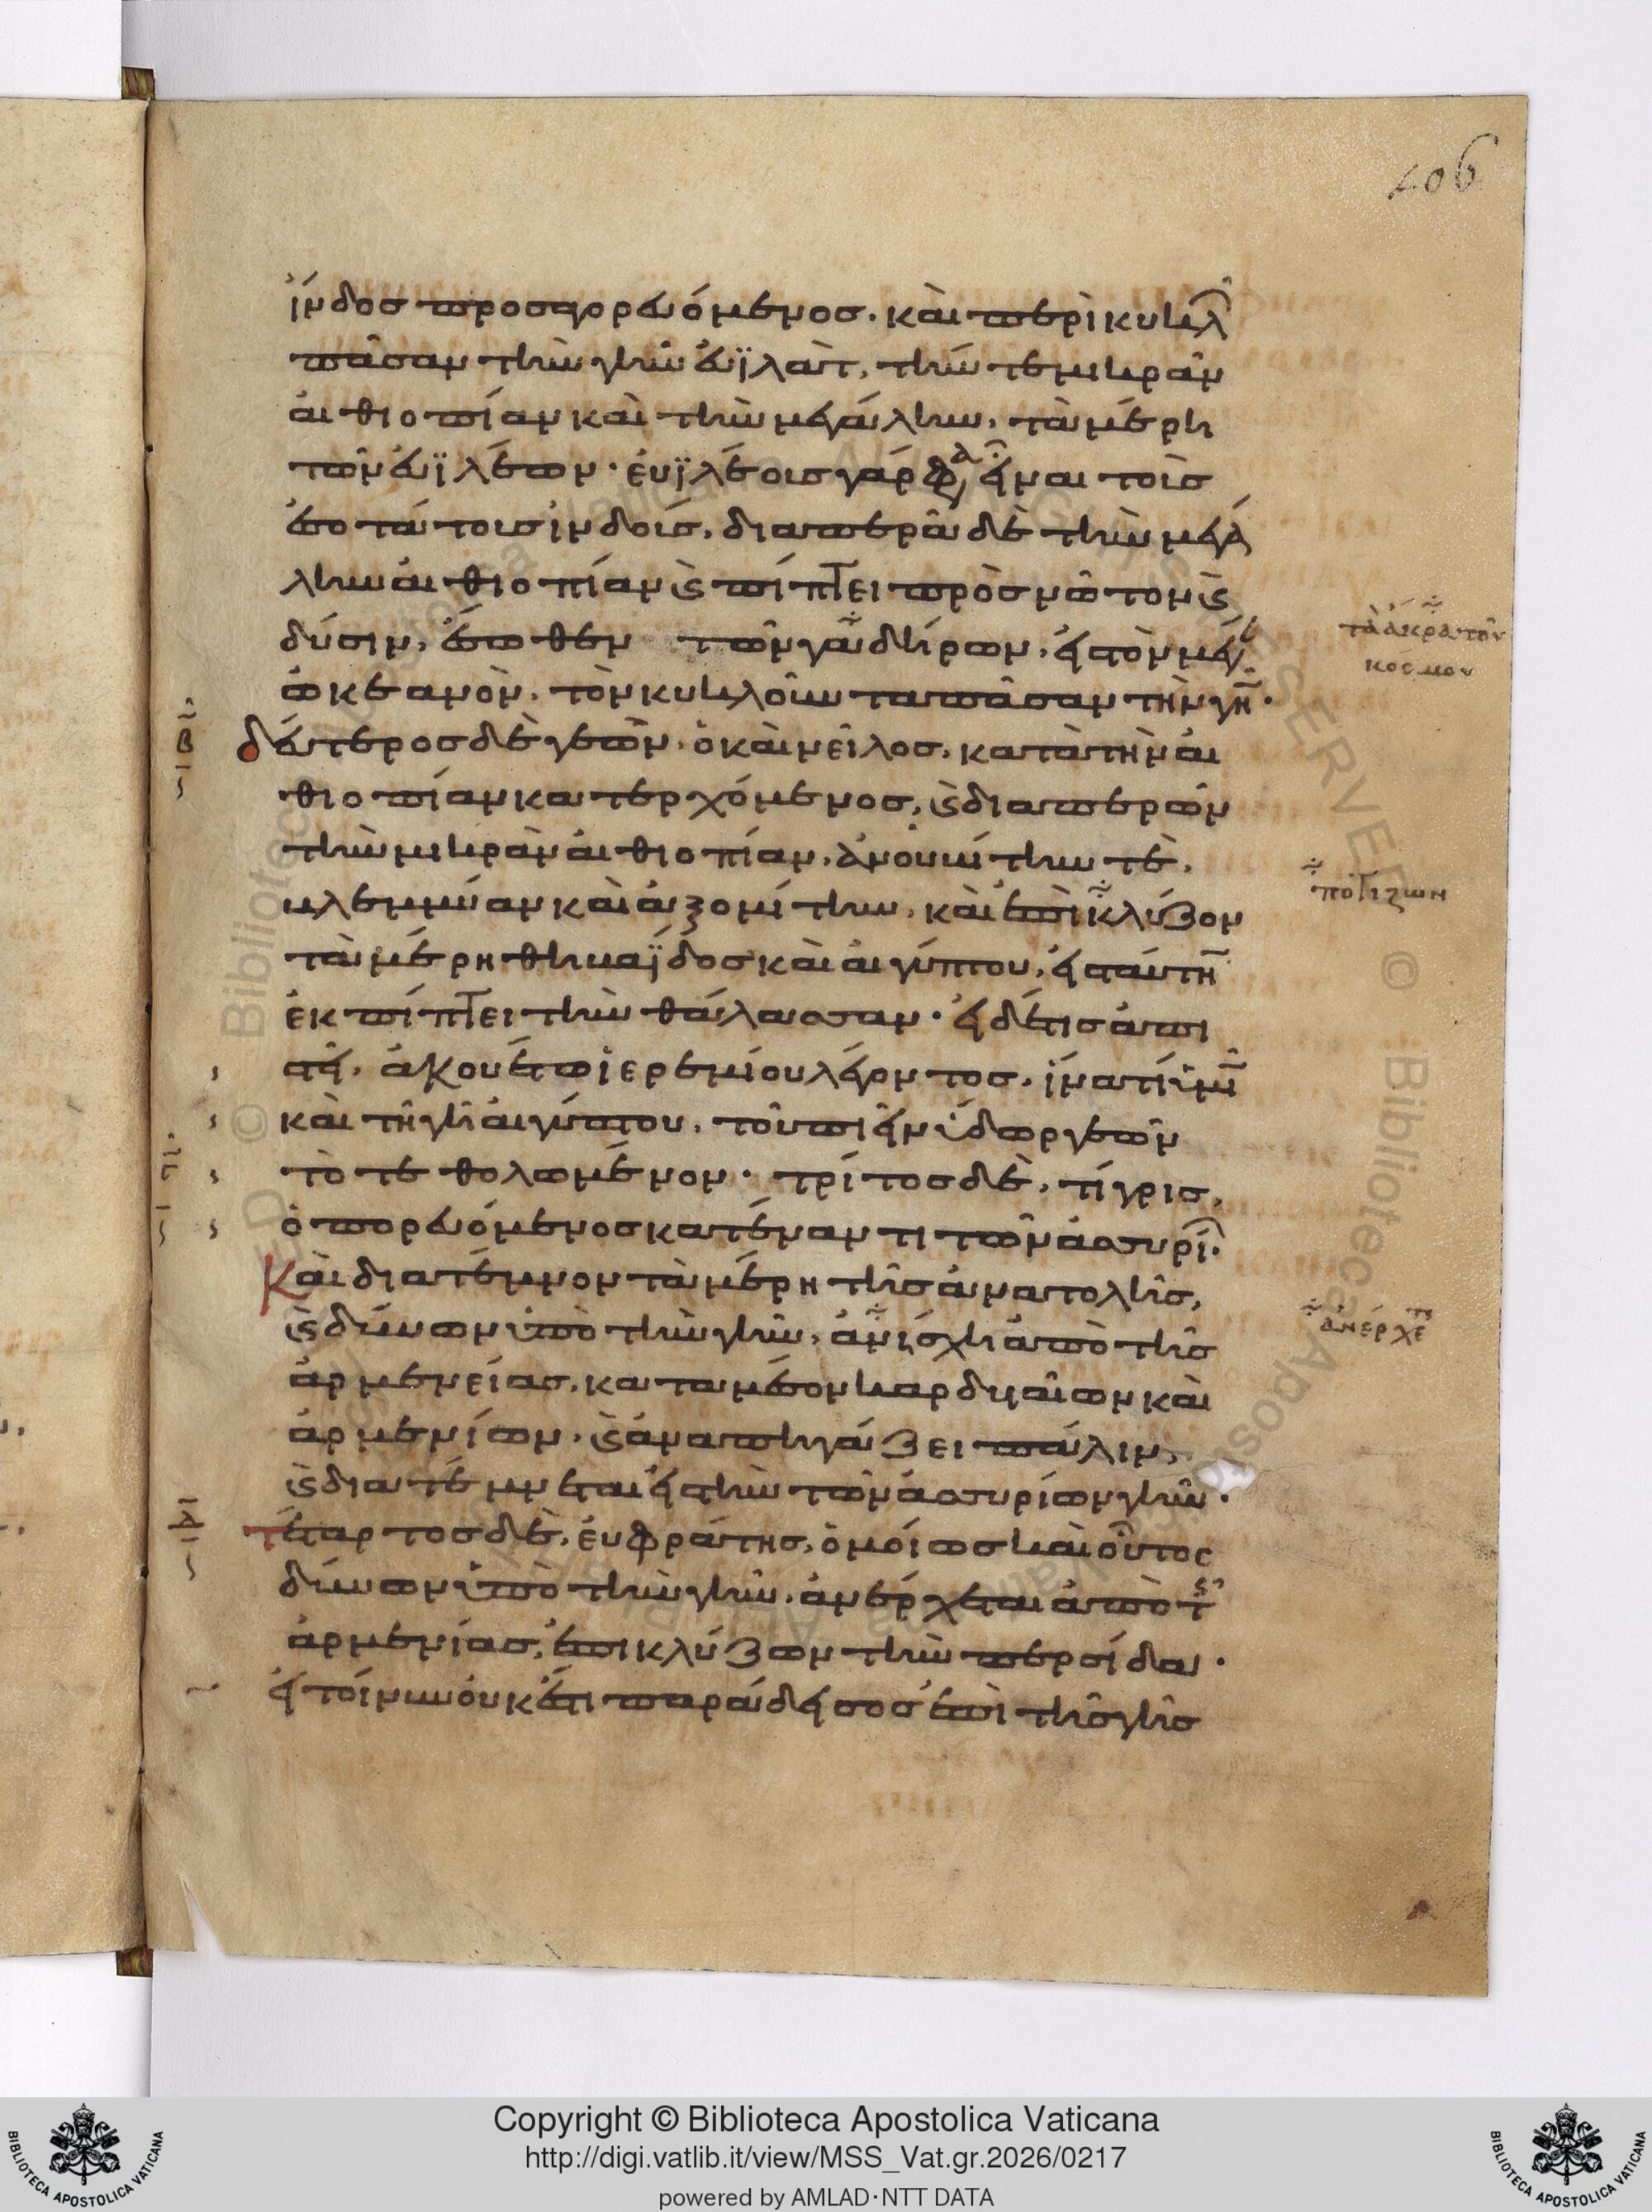 106
ἰνδοσ προσαγορευόμενοσ. καὶ περὶ κυκλ
πᾶσαν τὴν γῆν εὐϊλὰτ, τήν τε μικρὰν
αἰθιοπίαν καὶ τὴν μεγάλην, τὰ μέρη
τῶν εὐϊλέων· ἐυϊλέοισ γάρ φα εἶναι τοῖσ
ἐσοτάτοισ ἰνδοίσ, διαπερᾶ δὲ τὴν μεγά
λην αἰθιοπίαν ϗ πίπτει πρὸσ νῶτον ϗ
δύσιν, ἔσωθεν τῶν γαδήρων, εἰσ τὸν μέγ
ὠκεανὸν. τὸν κυκλοῦντα πᾶσαν τὴν γῆν·
τὰ ἄκρα τοῦ
κόσμου
ιβ
δεύτεροσ δὲ γεῶν, ὁ καὶ νεῖλοσ, κατὰ τὴν αἰ
θιοπίαν κατερχόμενοσ, ϗ διαπερῶν
τὴν μικρὰν ἀιθιοπίαν, ἀνουμίτην τὲ,
βλεμμύαν καὶ ἀξομίτην, καὶ ἐπικλύζον
ποτίζων
τὰ μέρη θηβαΐδοσ καὶ αἰγύπτου, εἰσ ταύτην
ἐκπίπτει τὴν θάλασσαν· εἰ δέ τισ ἀπι
στεῖ, ἀκουέτω ἱερεμίου λέγοντοσ, ἵνα τί ὑμῖν
καὶ τῆ γῆ αἰγύπτου, τοῦ πιεῖν ὕδωρ γεῶν
τὸ τεθολωμένον· τρίτοσ δὲ, τίγρισ,
ιγ
ὁ πορευόμενοσ κατέναντι τῶν ἀσσυρί.
Καὶ διατέμνον τὰ μέρη τῆσ ἀνατολῆσ,
ϗ δύνων ὑπὸ τὴν γῆν, ἀνίσχη ἀπὸ τῆσ
ἀνέρχεται
ἀρμενείασ, κατα μέσον καρδυαίων καὶ
ἀρμενίων, ϗ ἀναπηγάζει πάλιν,
ϗ διατέμνεται εἰσ τὴν τῶν ἀσσυρίων γῆν·
ιδ
τέταρτοσ δὲ, ἐυφράτησ, ὁμοίωσ καὶ οὗτος
δύνων ὑπὸ τὴν γῆν, ἀνέρχεται ἀπὸ τῆσ
ἀρμενίασ, ἐπικλύζων τὴν περσίδα·
εἰ τοίνυν οὐκ ἔτι παράδεισοσ ἐπὶ τῆσ γῆσ
DE © Biblioteca Apostolica Vaticana
Copyright © Biblioteca Apostolica Vaticana
http://digi.vatlib.it/view/MSS_Vat.gr.2026/0217
powered by AMLAD·NTT DATA
BIBLIOTECA APOSTOLICA VATICANA
BIBLIOTECA APOSTOLICA VATICANA